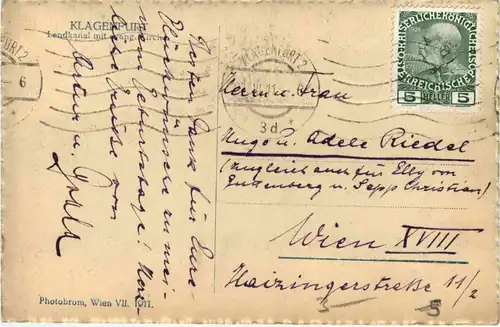 KLAGENFURT
Lendkanal mit evang. Kirche
KLAGENFURT 2
6
3d
KAISERLICHE KÖNIGLICHE
ÖSTERREICHISCHE POST
5 HELLER 5
Besten Dank für Eure
Glückwünsche zu mei-
nem Geburtstage! Herz-
liche Grüße von
Artur u.
Herrn u. Frau
Hugo u. Adele Riedel
(zugleich auch für Elly von
Gutenberg u. Sepp Christian)
Wien XVIII
Haizingerstraße 11/2
5
Photobrom, Wien VII. 1911.